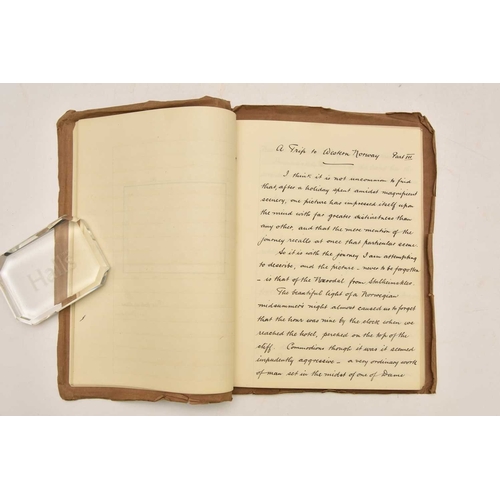 A Trip to Western Norway Part III.
I think it is not uncommon to find
that, after a holiday spent amidst magnificent
scenery, one picture has impressed itself upon
the mind with far greater distinctness than
any other, and that the mere mention of the
journey recalls at once that particular scene.
So it is with the journey I am attempting
to describe, and the picture – never to be forgotten
– is that of the Naerodal from Stalheimsklev
The beautiful light of a Norwegian
midsummer's night almost caused us to forget
that the hour was nine by the clock when we
reached the hotel, perched on the top of the
cliff. Commodious though it was it seemed
impudently aggressive – a very ordinary work
of man set in the midst of one of Dame
Halls